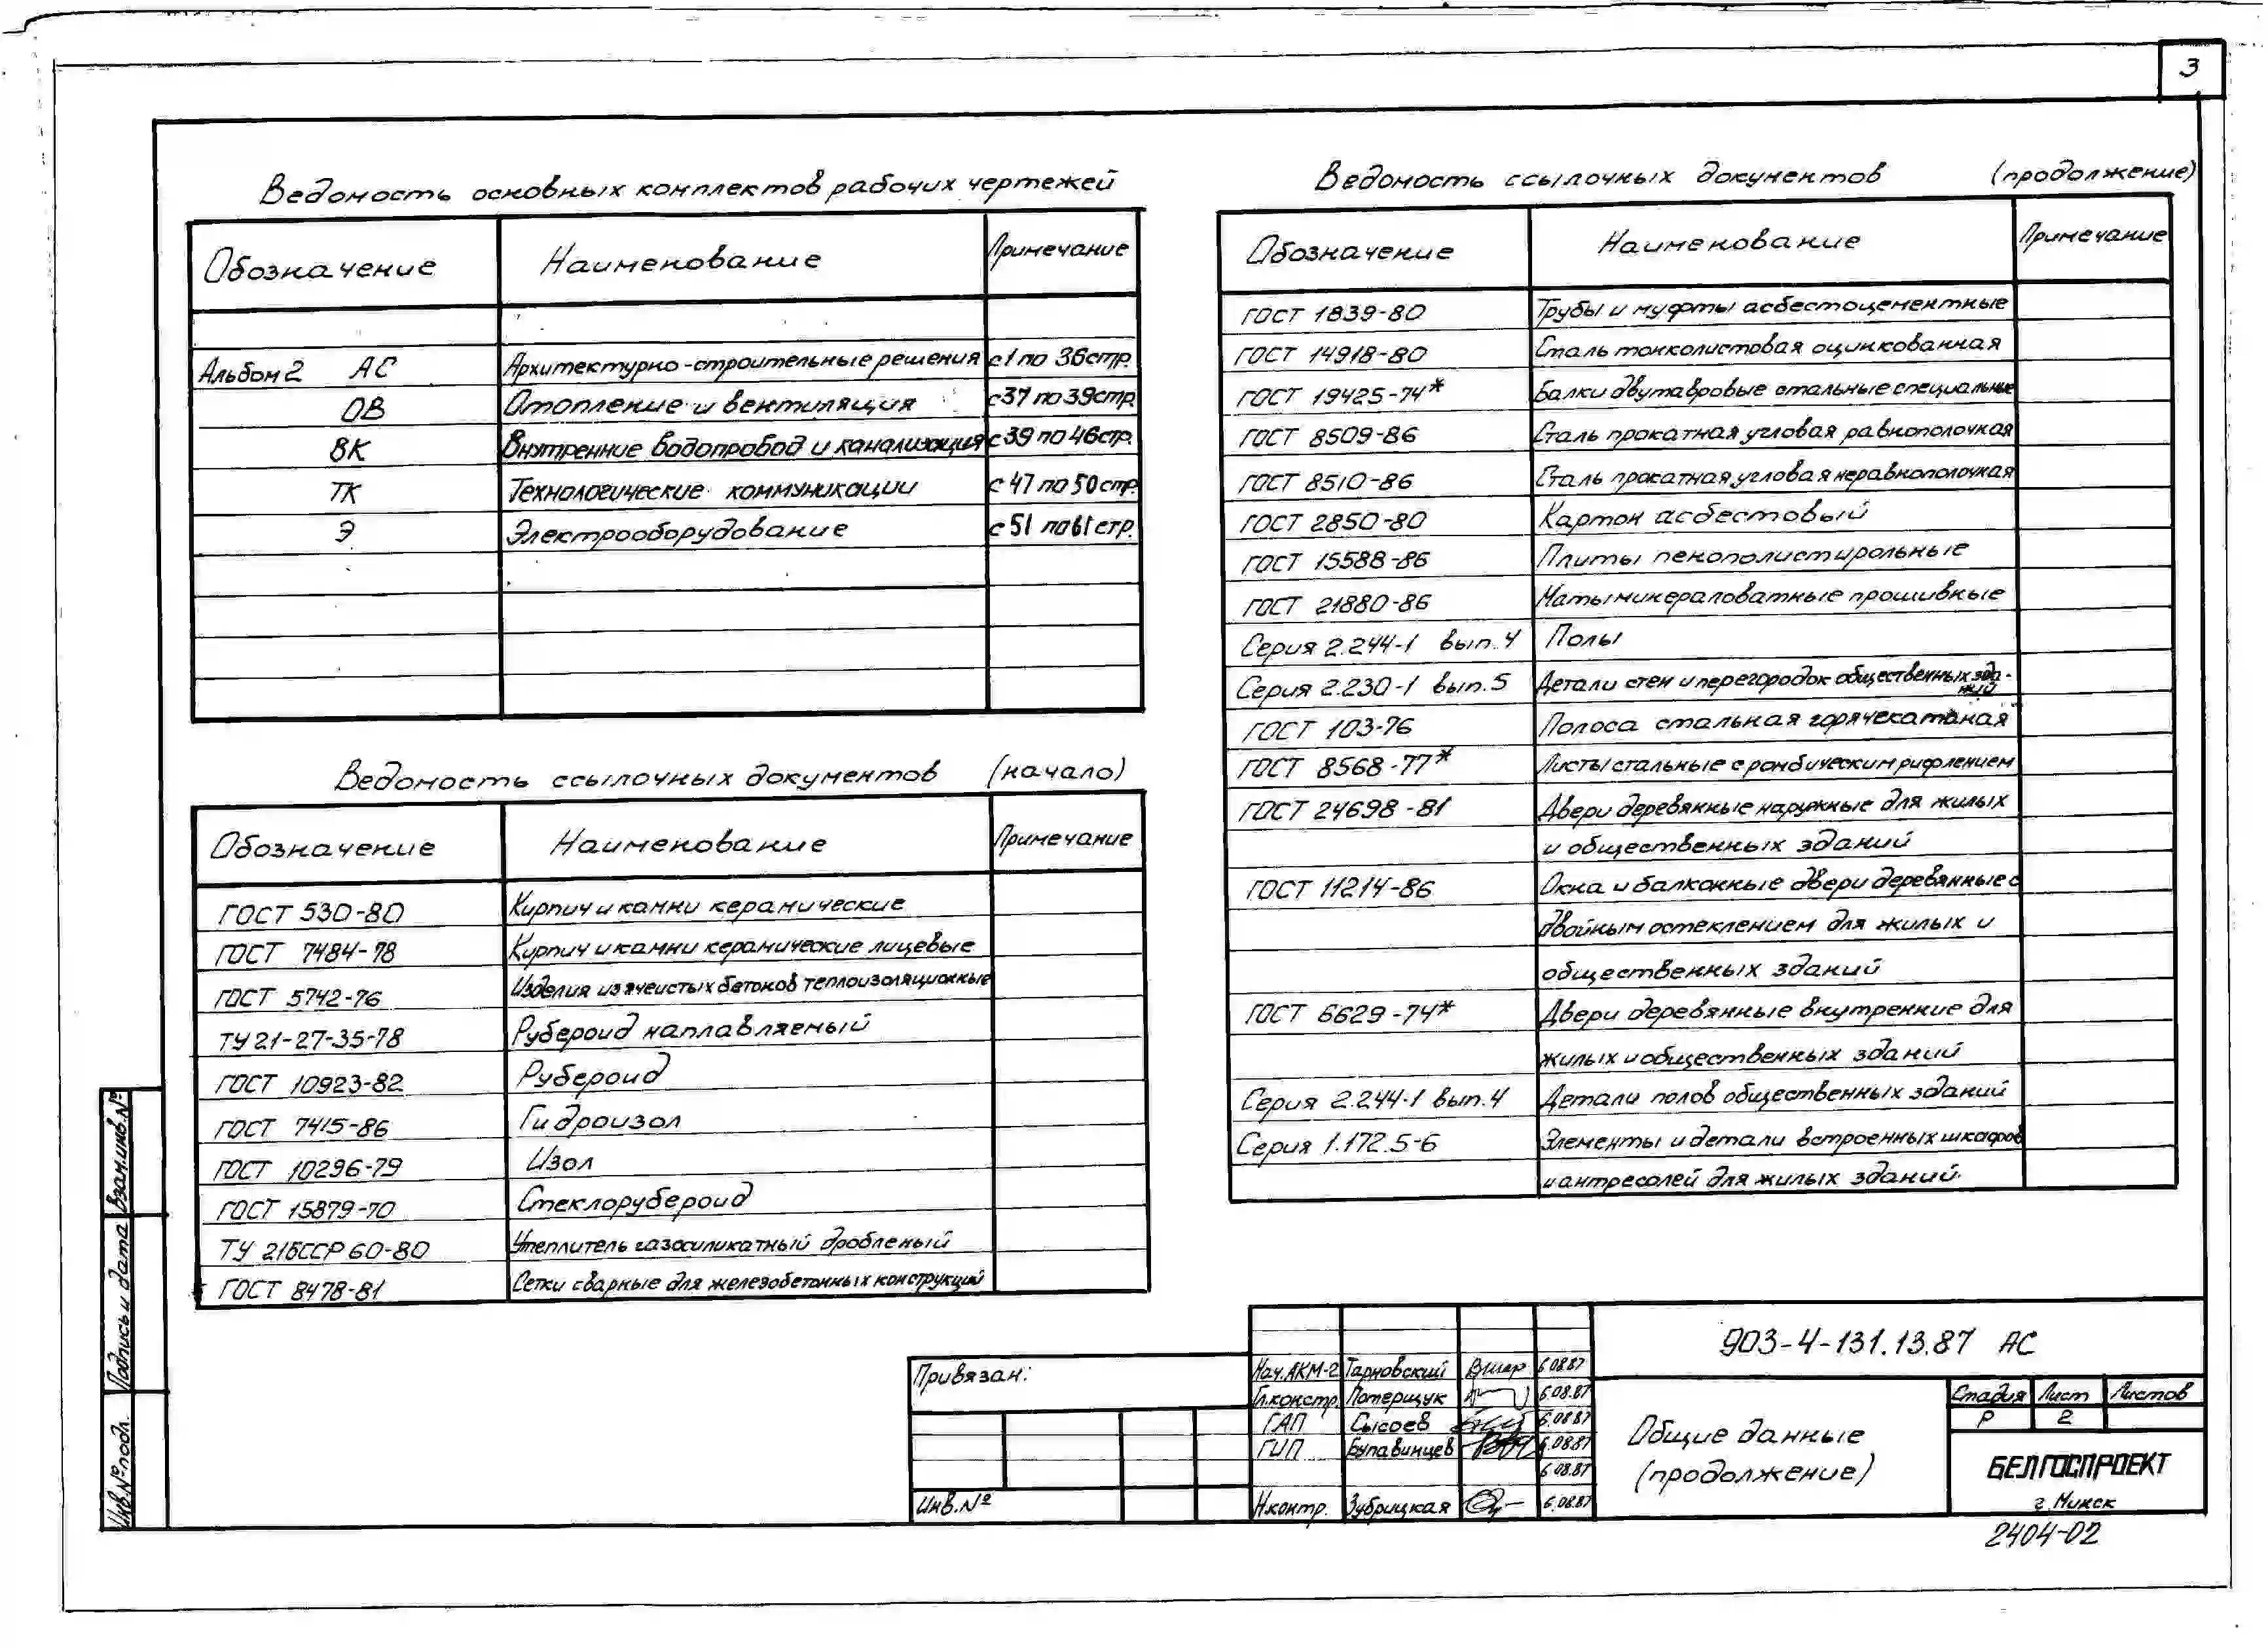 3
Ведомость основных комплектов рабочих чертежей
Обозначение Наименование Примечание
Альбом 2 АС Архитектурно-строительные решения с 1 по 36 стр.
ОВ Отопление и вентиляция с 37 по 39 стр.
ВК Внутренние водопровод и канализация с 39 по 46 стр.
ТК Технологические коммуникации с 47 по 50 стр.
Э Электрооборудование с 51 по 61 стр.
Ведомость ссылочных документов (начало)
Обозначение Наименование Примечание
ГОСТ 530-80 Кирпич и камни керамические
ГОСТ 7484-78 Кирпич и камни керамические лицевые
ГОСТ 5742-76 Изделия из ячеистых бетонов теплоизоляционные
ТУ 21-27-35-78 Рубероид наплавляемый
ГОСТ 10923-82 Рубероид
ГОСТ 7415-86 Гидроизол
ГОСТ 10296-79 Изол
ГОСТ 15879-70 Стеклорубероид
ТУ 21БССР 60-80 Утеплитель газосиликатный дробленый
ГОСТ 8478-81 Сетки сварные для железобетонных конструкций
Ведомость ссылочных документов (продолжение)
Обозначение Наименование Примечание
ГОСТ 1839-80 Трубы и муфты асбестоцементные
ГОСТ 14918-80 Сталь тонколистовая оцинкованная
ГОСТ 19425-74* Балки двутавровые стальные специальные
ГОСТ 8509-86 Сталь прокатная угловая равнополочная
ГОСТ 8510-86 Сталь прокатная угловая неравнополочная
ГОСТ 2850-80 Картон асбестовый
ГОСТ 15588-86 Плиты пенополистирольные
ГОСТ 21880-86 Маты минераловатные прошивные
Серия 2.244-1 вып.4 Полы
Серия 2.230-1 вып.5 Детали стен и перегородок общественных зда-
ний
ГОСТ 103-76 Полоса стальная горячекатаная
ГОСТ 8568-77* Листы стальные с ромбическим рифлением
ГОСТ 24698-81 Двери деревянные наружные для жилых
и общественных зданий
ГОСТ 11214-86 Окна и балконные двери деревянные с
двойным остеклением для жилых и
общественных зданий
ГОСТ 6629-74* Двери деревянные внутренние для
жилых и общественных зданий
Серия 2.244-1 вып.4 Детали полов общественных зданий
Серия 1.172.5-6 Элементы и детали встроенных шкафов
и антресолей для жилых зданий.
Взам.инв.№
Подпись и дата
Инв.№подл.
Привязан:
Инв.№
Нач.АКМ-2 Тарновский 6.08.87
Гл.констр. Потерщук 6.08.87
ГАП Сысоев 6.08.87
ГИП 6.08.87
6.08.87
Н.контр. Зубрицкая 6.08.87
903-4-131.13.87 АС
Общие данные
(продолжение)
Стадия Лист Листов
Р 2
БЕЛГОСПРОЕКТ
г. Минск
2404-02